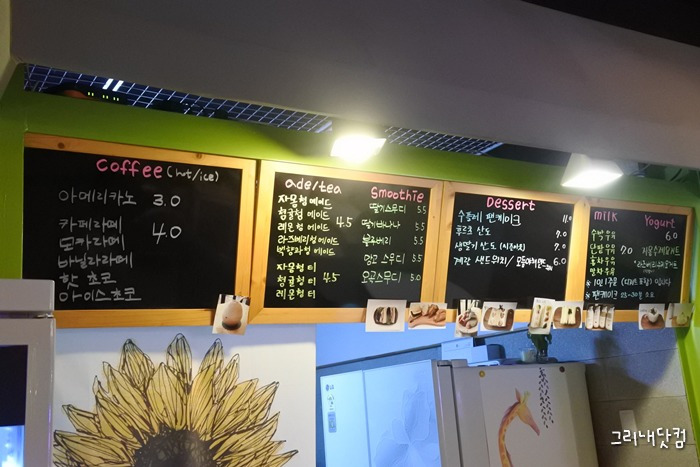 Coffee (hot/ice)
아메리카노 3.0
카페라떼
돌카라떼 4.0
바닐라라떼
핫 초코
아이스초코
ade/tea
자몽청에이드
청귤청 에이드 4.5
레몬청 에이드
라즈베리청에이드
백향과청 에이드
자몽청 티
청귤청 티 4.5
레몬청 티
Smoothie
딸기스무디 5.5
딸기바나나 5.5
블루베리 5.5
망고 스무디 5.5
오곡스무디 5.0
Dessert
수플레 팬케이크 11.0
후르츠 산도 7.0
생딸기 산도 (시즌메뉴) 7.0
계란 샌드위치 6.0
milk
수박우유
단팥우유 7.0
홍차우유
말차우유
Yogurt
6.0
리얼수제요거트
* 1인 1주문 (디저트 포함) 입니다
* 팬케이크 25-30분 소요
LG
그리내닷컴